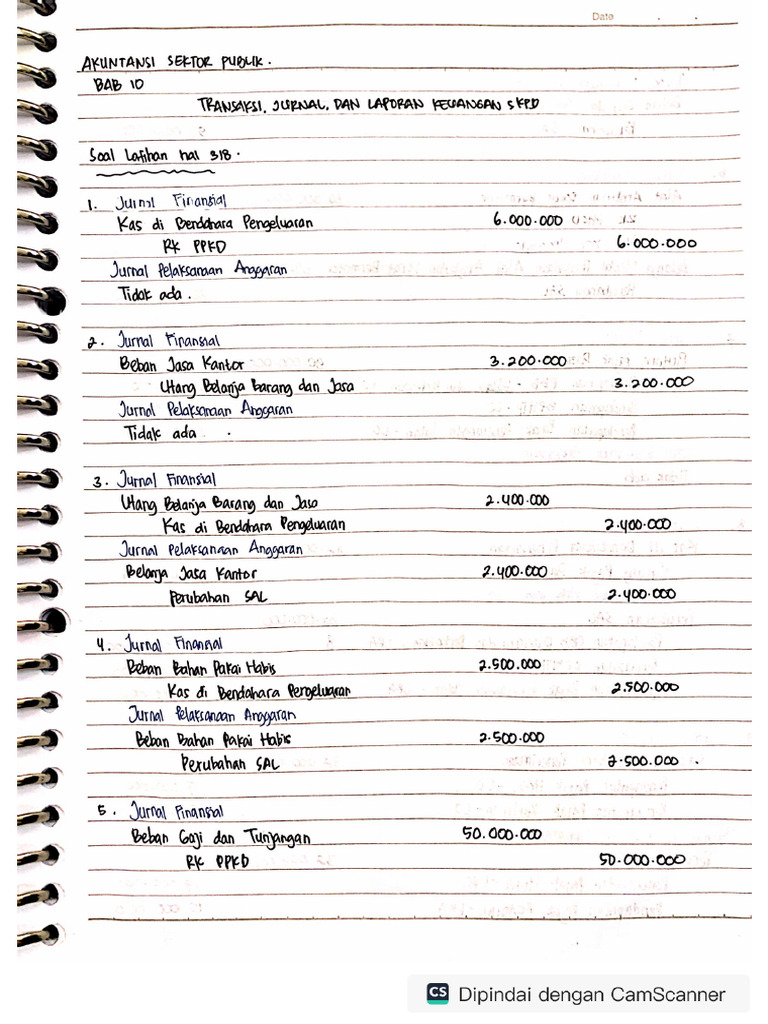 Date . .
AKUNTANSI SEKTOR PUBLIK.
BAB 10
TRANSAKSI, JURNAL, DAN LAPORAN KEUANGAN SKPD
Soal Latihan hal 318.
1. Jurnal Finansial
Kas di Bendahara Pengeluaran 6.000.000
RK PPKD 6.000.000
Jurnal Pelaksanaan Anggaran
Tidak ada.
2. Jurnal Finansial
Beban Jasa Kantor 3.200.000
Utang Belanja Barang dan Jasa 3.200.000
Jurnal Pelaksanaan Anggaran
Tidak ada.
3. Jurnal Finansial
Utang Belanja Barang dan Jasa 2.400.000
Kas di Bendahara Pengeluaran 2.400.000
Jurnal Pelaksanaan Anggaran
Belanja Jasa Kantor 2.400.000
Perubahan SAL 2.400.000
4. Jurnal Finansial
Beban Bahan Pakai Habis 2.500.000
Kas di Bendahara Pengeluaran 2.500.000
Jurnal Pelaksanaan Anggaran
Beban Bahan Pakai Habis 2.500.000
Perubahan SAL 2.500.000.
5. Jurnal Finansial
Beban Gaji dan Tunjangan 50.000.000
RK PPKD 50.000.000
CS Dipindai dengan CamScanner